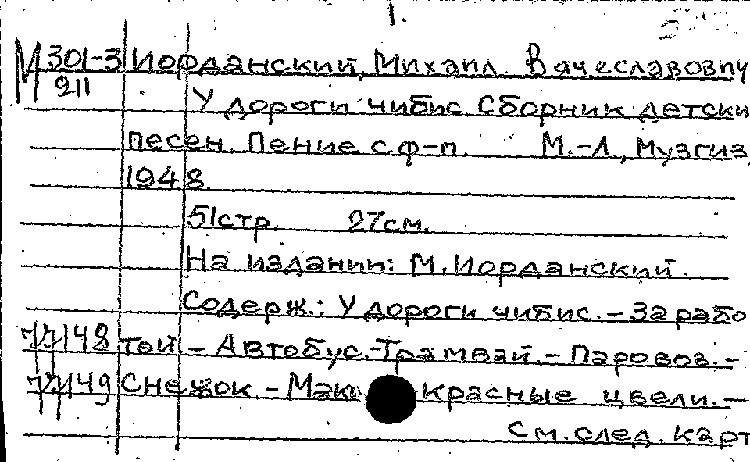 1.
М 301-3 Иорданский, Михаил Вячеславович
211 У дороги чибис. Сборник детски
песен. Пение с ф-п. М.-Л., Музгиз,
1948.
51стр. 27см.
На издании: М. Иорданский.
Содерж.: У дороги чибис. - За рабо
77148 той - Автобус. - Трамвай. - Паровоз. -
77149 Снежок. - Маки красные цвели. -
См. след. карт